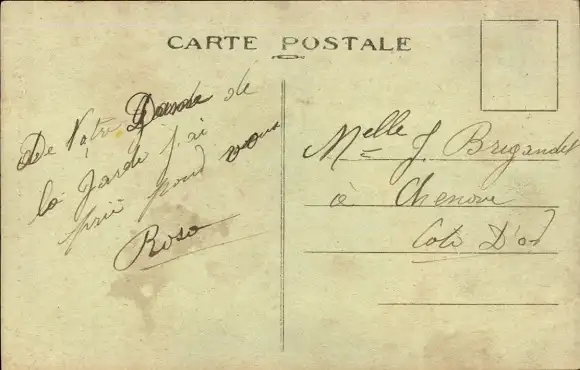 CARTE POSTALE
De Nôtre Dame de
la Garde j'ai
prié pour vous
Rosa
Melle J. Brigandet
à Chenove
Cote D'or